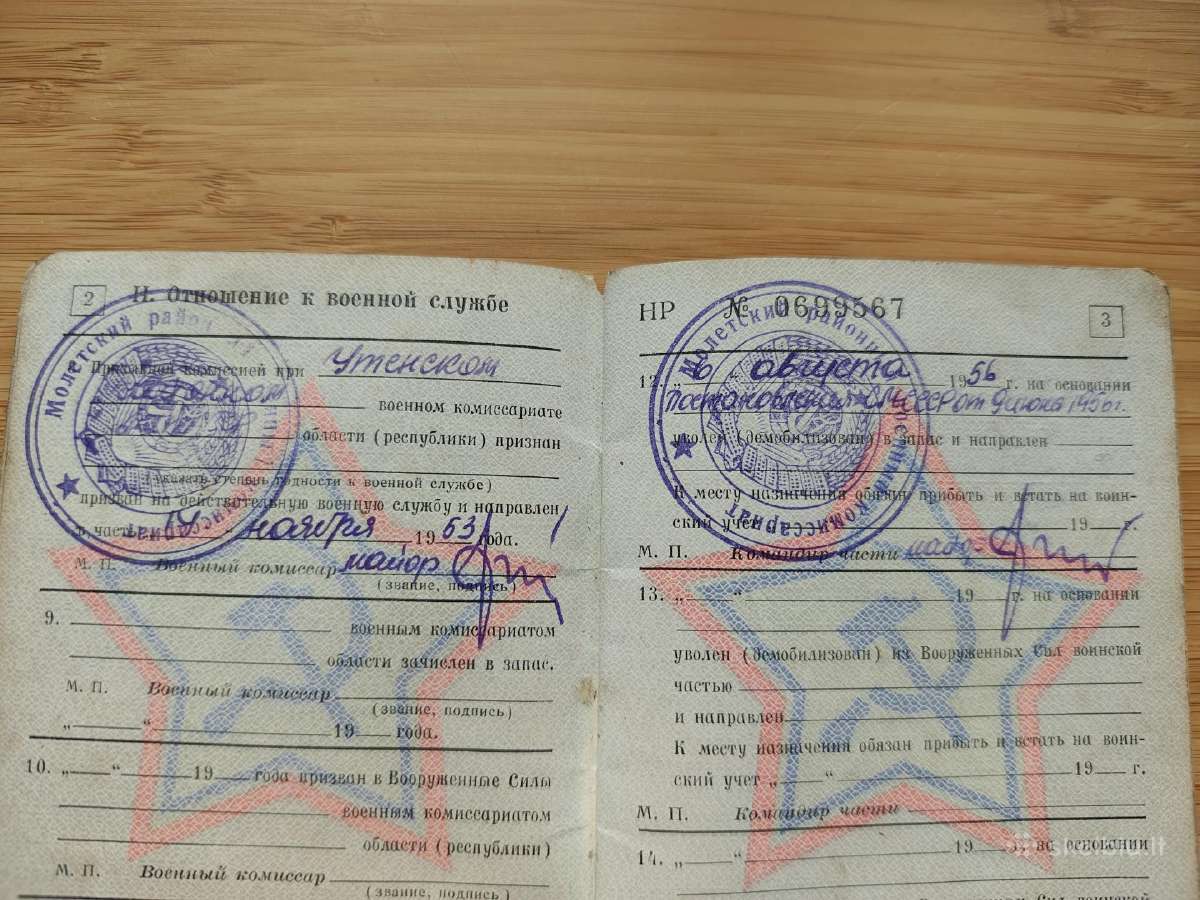 2
II. Отношение к военной службе
Призывной комиссией при Утенском
военном комиссариате
области (республики) признан
(указать степень годности к военной службе)
призван на действительную военную службу и направлен
в часть 14 ноября 1953 года.
М. П. Военный комиссар майор
(звание, подпись)
9.
военным комиссариатом
области зачислен в запас.
М. П. Военный комиссар
(звание, подпись)
„ “ 19 года.
10. „ “ 19 года призван в Вооруженные Силы
военным комиссариатом
области (республики)
М. П. Военный комиссар
(звание, подпись)
Молетский районный
комиссариат
НР № 0699567
3
12. „6 августа 1956 г. на основании
Постановления СМ СССР от 9 июня 1956 г.
уволен (демобилизован) в запас и направлен
К месту назначения обязан прибыть и встать на воин-
ский учет 19 г.
М. П. Командир части
13. „ “ 19 г. на основании
уволен (демобилизован) из Вооруженных Сил воинской
частью
и направлен
К месту назначения обязан прибыть и встать на воин-
ский учет „ “ 19 г.
М. П. Командир части
14. „ “ 19 г. на основании
Сил воинской
Молетский районный
комиссариат
skelbiu.lt